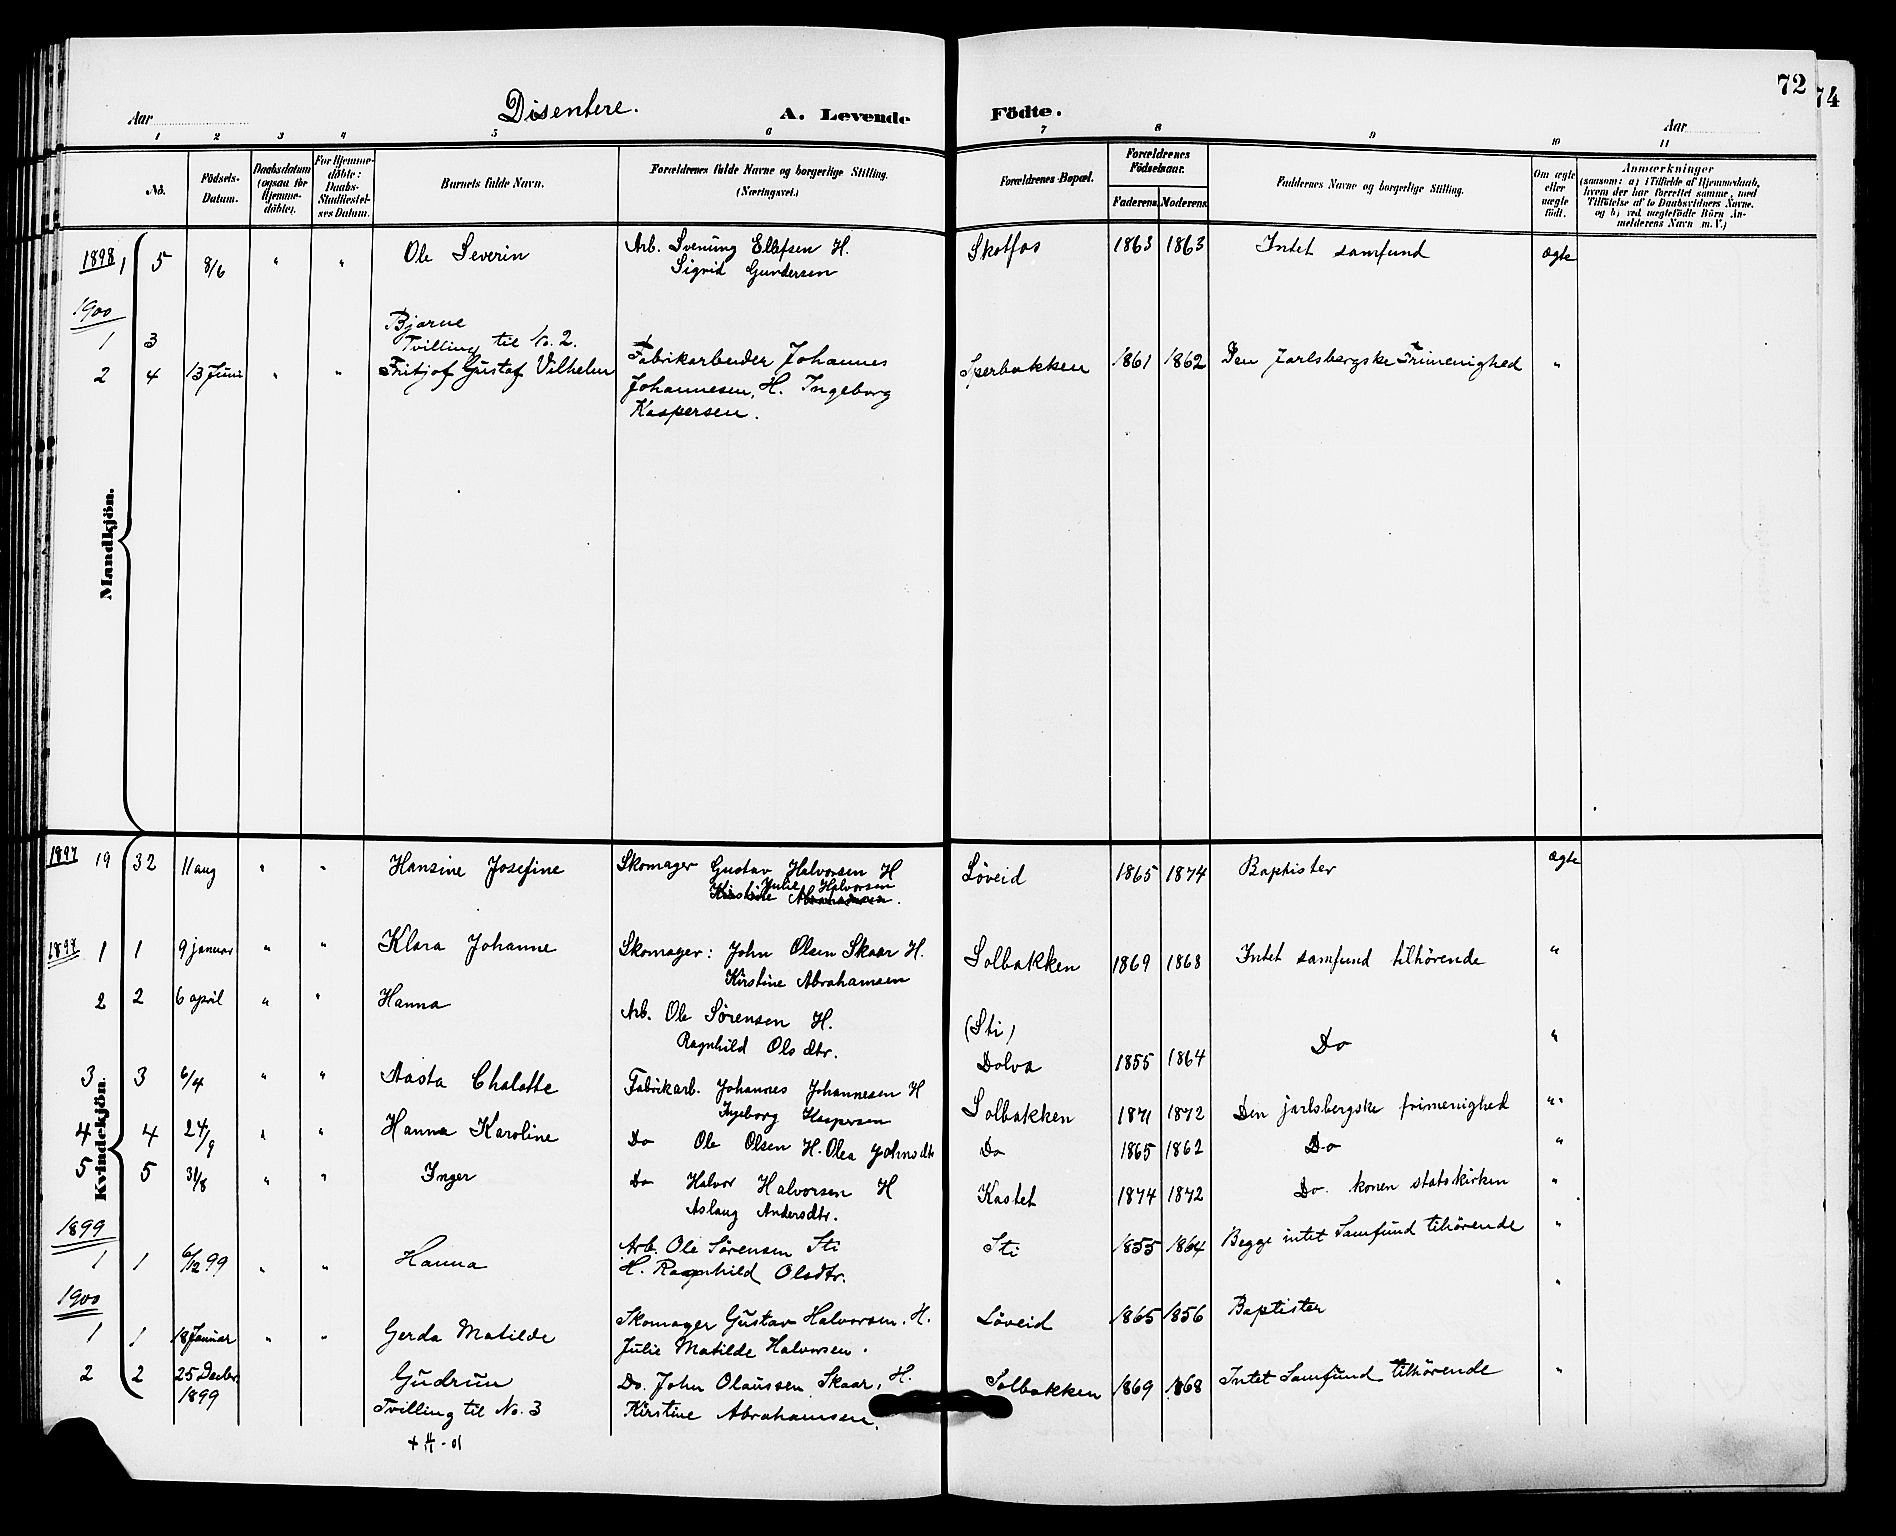 72
74
Disentere.
Aar
A. Levende
Födte.
Aar
1 2 3 4 5 6 7 8 9 10 11
No.
Födsels-Datum.
Daabsdatum (ogsaa for Hjemme-döbte).
For Hjemme-döbte: Daabs-Stadfæstel-ses Datum.
Barnets fulde Navn.
Forældrenes fulde Navne og borgerlige Stilling. (Næringsvei.)
Forældrenes Bopæl.
Forældrenes Födselsaar.
Faderens. Moderens.
Faddernes Navne og borgerlige Stilling.
Om ægte eller uægte födt.
Anmærkninger
(saasom: a) i Tilfælde af Hjemmedaab,
hvem der har forrettet samme, med
Tilföielse af to Daabsvidners Navne,
og b) ved uægtefödte Börn An-
melderens Navn m. V.)
Mandkjön.
1898 1 5 8/6 " " Ole Severin Arb. Svenung Ellefsen H. Skotfos 1863 1863 Intet samfund ægte
Sigrid Gundersen
1900
Bjarne
1 3 Tvilling til No. 2.
2 4 13 Juni " " Fritjof Gustaf Vilhelm Fabrikarbeider Johannes 1861 1862 Den Jarlsbergske Frimenighed "
Johannesen, H. Ingeborg
Kaspersen.
Kvindekjön.
1897 19 32 11 aug " " Hansine Josefine Skomager Gustav Halvorsen H Löveid 1865 1874 Baptister ægte
Julie Halvorsen
Kirstine Abrahamsen.
1898 1 1 9 januar " " Klara Johanne Skomager: John Olsen Skaar H. Solbakken 1869 1868 Intet samfund tilhörende "
Kirstine Abrahamsen
2 2 6 april " " Hanna Arb. Ole Sörensen H. (Sti)
Ragnhild Olsdtr. Dolva 1855 1864 Do "
3 3 6/4 " " Aasta Chalotte Fabrikarb. Johannes Johannesen H Solbakken 1871 1872 Den jarlsbergske frimenighed "
Ingeborg Kaspersen
4 4 24/9 " " Hanna Karoline Do Ole Olsen H. Olea Johnsdtr Do 1865 1862 Do "
5 5 31/8 " " Inger Do Halvor Halvorsen H Kastet 1874 1872 Do. konen statskirken "
Aslaug Andersdtr.
1899
1 1 6/12 99 " " Hanna Arb. Ole Sörensen Sti Sti 1855 1864 Begge intet Samfund tihörende "
H. Ragnhild Olsdtr.
1900
1 1 18 Januar " " Gerda Matilde Skomager Gustav Halvorsen. H. Löveid 1865 1856 Baptister "
Julie Matilde Halvorsen.
2 2 25 Decbr 1899 Gudrun Do. John Olaussen Skaar, H. Solbakken 1869 1868 Intet Samfund tilhörende "
Tvilling til No. 3 Kirstine Abrahamsen.